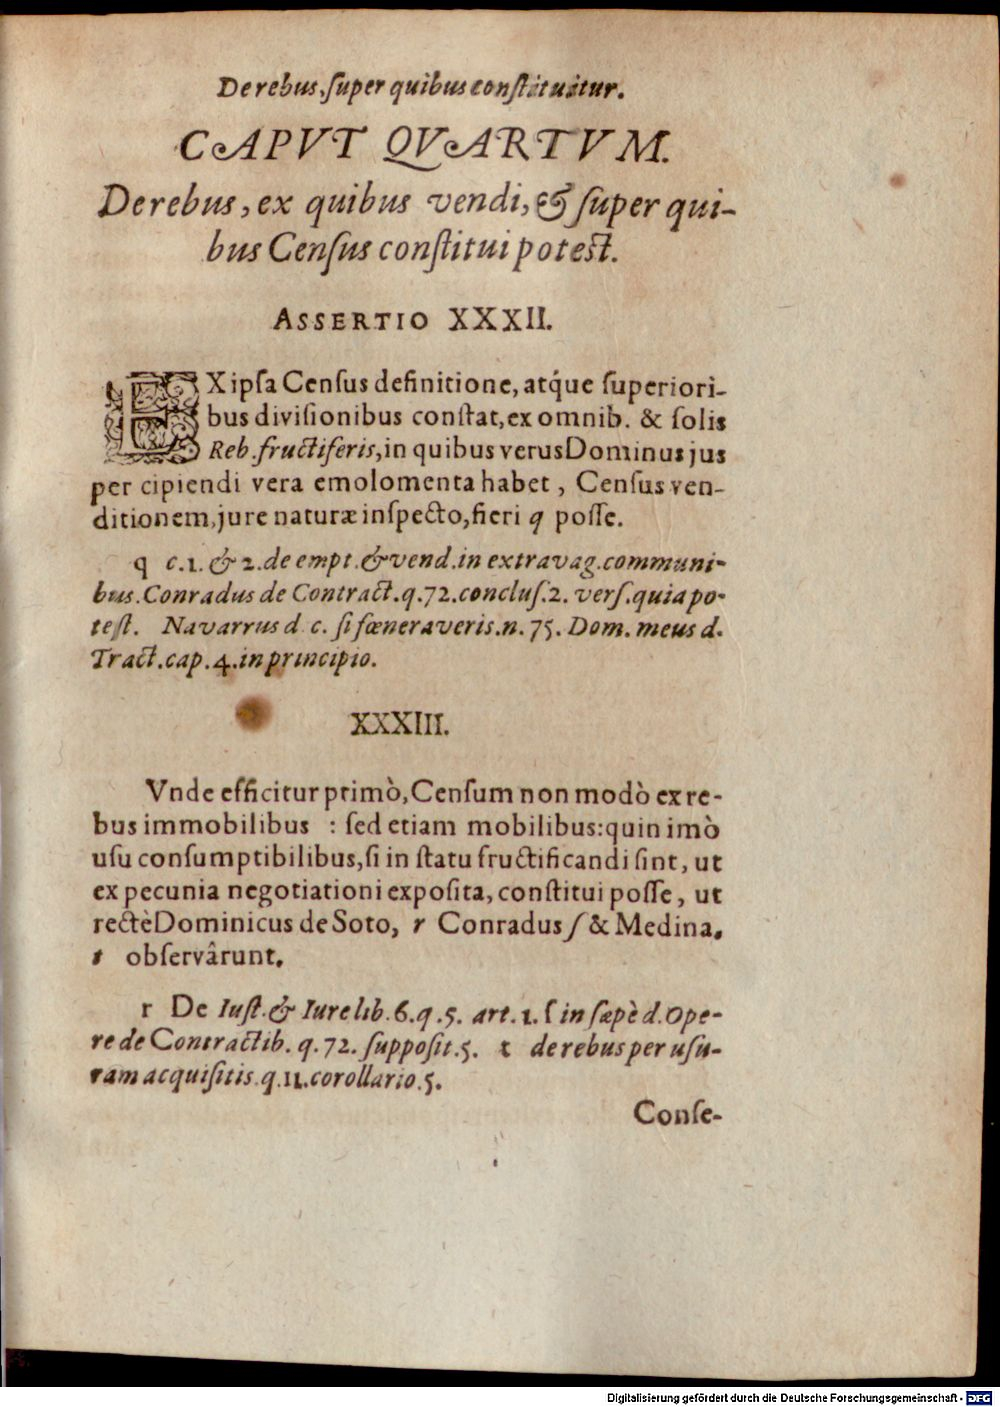 De rebus, ſuper quibus conſtituitur.
CAPVT QVARTVM.
De rebus, ex quibus vendi, & ſuper qui-
bus Cenſus conſtitui potest.
ASSERTIO XXXII.
EX ipſa Cenſus definitione, atq́ue ſuperiori-
bus diviſionibus conſtat, ex omnib. & ſolis
Reb. fructiferis, in quibus verus Dominus jus
per cipiendi vera emolomenta habet, Cenſus ven-
ditionem, jure naturæ inſpecto, fieri q poſſe.
q c. 1. & 2. de empt. & vend. in extravag. communi-
bus. Conradus de Contract. q. 72. concluſ. 2. verſ. quia po-
teſt. Navarrus d. c. ſi fœneraveris. n. 75. Dom. meus d.
Tract. cap. 4. in principio.
XXXIII.
Vnde efficitur primò, Cenſum non modò ex re-
bus immobilibus : ſed etiam mobilibus: quin imò
uſu conſumptibilibus, ſi in ſtatu fructificandi ſint, ut
ex pecunia negotiationi expoſita, conſtitui poſſe, ut
rectè Dominicus de Soto, r Conradus ſ & Medina.
t obſervârunt.
r De Iuſt. & Iure lib. 6. q. 5. art. 1. ſ in ſæpè d. Ope-
re de Contractib. q. 72. ſuppoſit. 5. t de rebus per uſu-
ram acquiſitis. q. 11. corollario. 5.
Conſe-
Digitalisierung gefördert durch die Deutsche Forschungsgemeinschaft - DFG